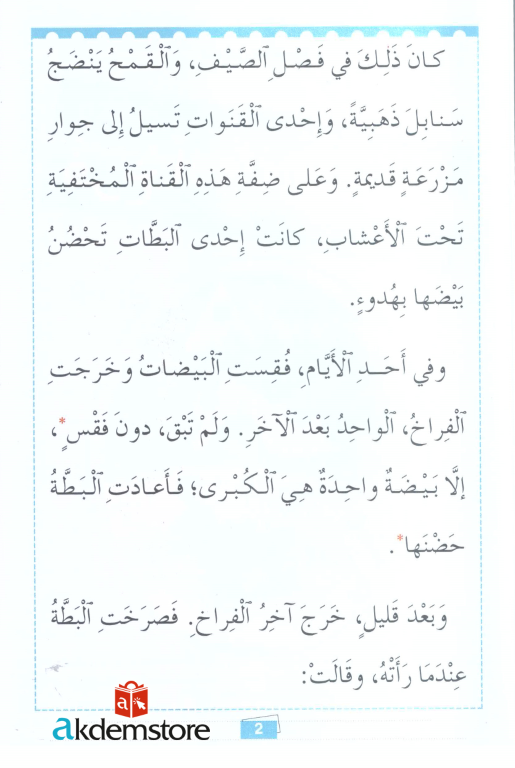 كانَ ذَلِكَ في فَصْلِ ٱلصَّيْفِ، وَٱلْقَمْحُ يَنْضَجُ
سَنابِلَ ذَهَبِيَّةً، وَإِحْدى ٱلْقَنَواتِ تَسيلُ إِلى جِوارِ
مَزْرَعَةٍ قَديمةٍ. وَعَلى ضِفَّةِ هَذِهِ ٱلْقَناةِ ٱلْمُخْتَفِيَةِ
تَحْتَ ٱلْأَعْشابِ، كانَتْ إِحْدى ٱلبَطَّاتِ تَحْضُنُ
بَيْضَها بِهُدوءٍ.
وفي أَحَدِ ٱلْأَيَّامِ، فُقِسَتِ ٱلْبَيْضاتُ وَخَرَجَتِ
ٱلْفِراخُ، ٱلْواحِدُ بَعْدَ ٱلْآخَرِ. وَلَمْ تَبْقَ، دونَ فَقْسٍ*،
إلَّا بَيْضَةٌ واحِدَةٌ هِيَ ٱلْكُبْرى؛ فَأَعادَتِ ٱلْبَطَّةُ
حَضْنَها*.
وَبَعْدَ قَليلٍ، خَرَجَ آخِرُ ٱلْفِراخِ. فَصَرَخَتِ ٱلْبَطَّةُ
عِنْدَمَا رَأَتْهُ، وقَالَتْ:
a
akdemstore
2